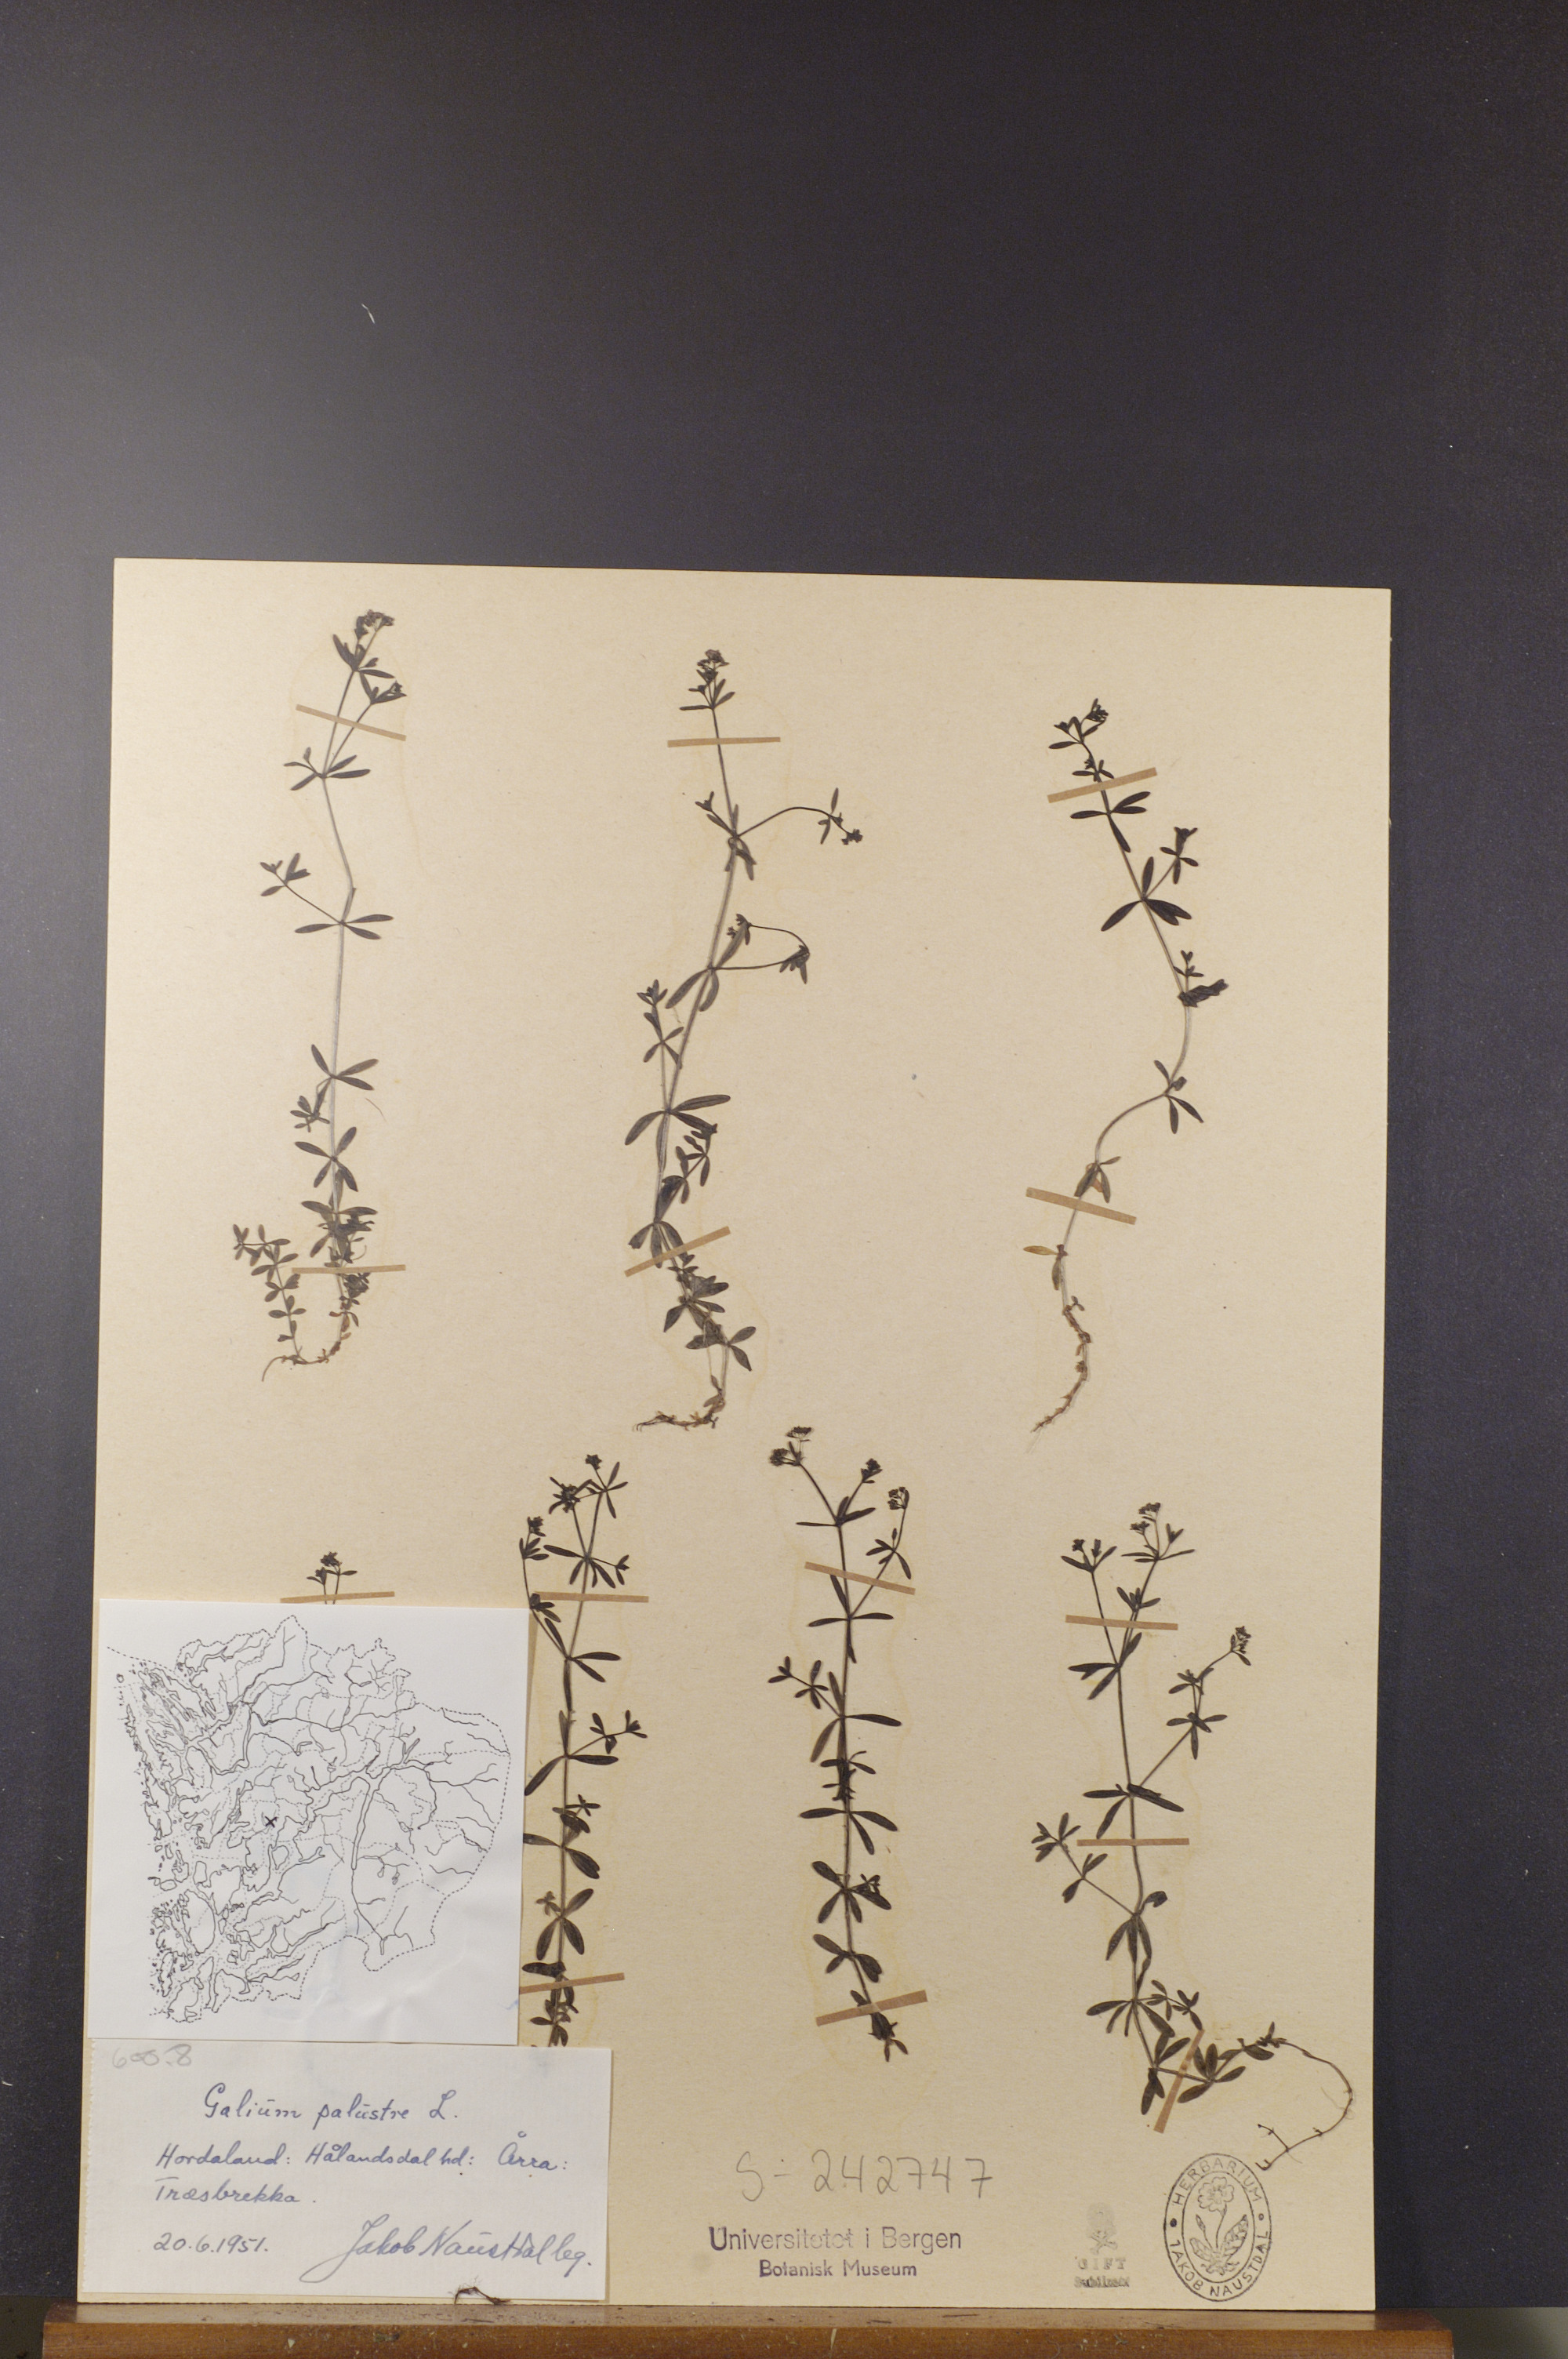 600.8
Galium palustre L.
Hordaland: Hålandsdal hd: Årra:
Træsbrekka.
20.6.1951. Jakob Naustdal leg.
S-242747
Universitetet i Bergen
Botanisk Museum
GIFT
Sublimat
HERBARIUM
JAKOB NAUSTDAL